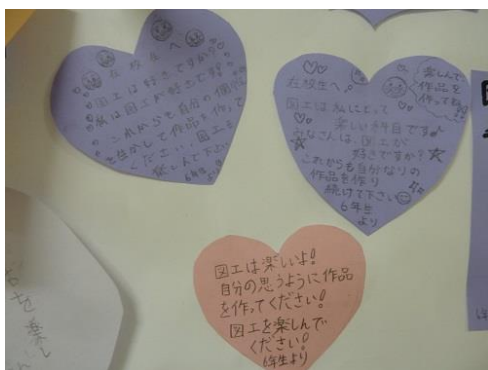 在校生へ
図工は好きですか?
私は図工が好きです。
これからも自分の個性を
生かして作品を作って
ください!図工を
楽しんで下さい
6年生より
楽しんで
作品を
作ってね
在校生へ
図工は私にとって
楽しい科目です♪
みなさんは、図工が
好きですか?☆
これからも自分なりの
作品を作り
続けて下さい
6年生
より
図工は楽しいよ!
自分の思うように作品
を作ってください!
図工を楽しんで
ください!
6年生より